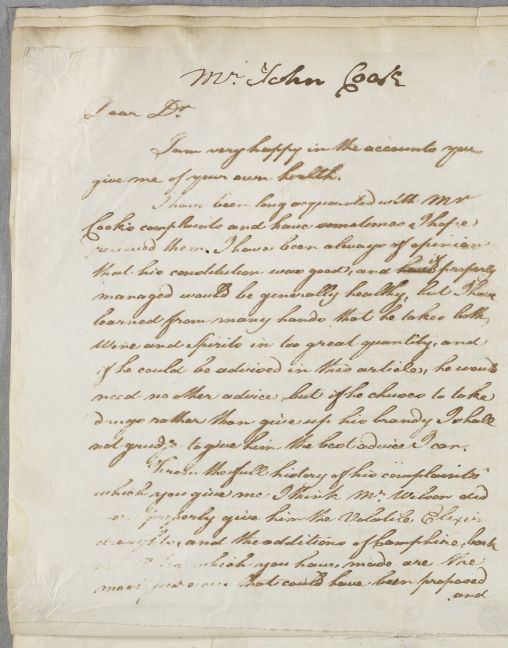 Mr. John Cook
Dear Dr.
I am very happy in the accounts you
give me of your own health.
I have been long acquainted with Mr
Cook's complaints and have sometimes I hope
relieved them. I have been always of opinion
that his constitution was good, and if properly
managed would be generally healthy, but I have
learned from many hands that he takes both
Wine and spirits in too great quantity; and
if he could be advised in this article, he would
need no other advice, but if he chuses to take
drugs rather than give up his brandy I shall
not grudge to give him the best advice I can.
From the full history of his complaints
which you give me I think Mr. Wilson did
properly give him the Volatile Elixir
draughts, and the additions of Camphire, bark
which you have made are the
most that could have been proposed
and